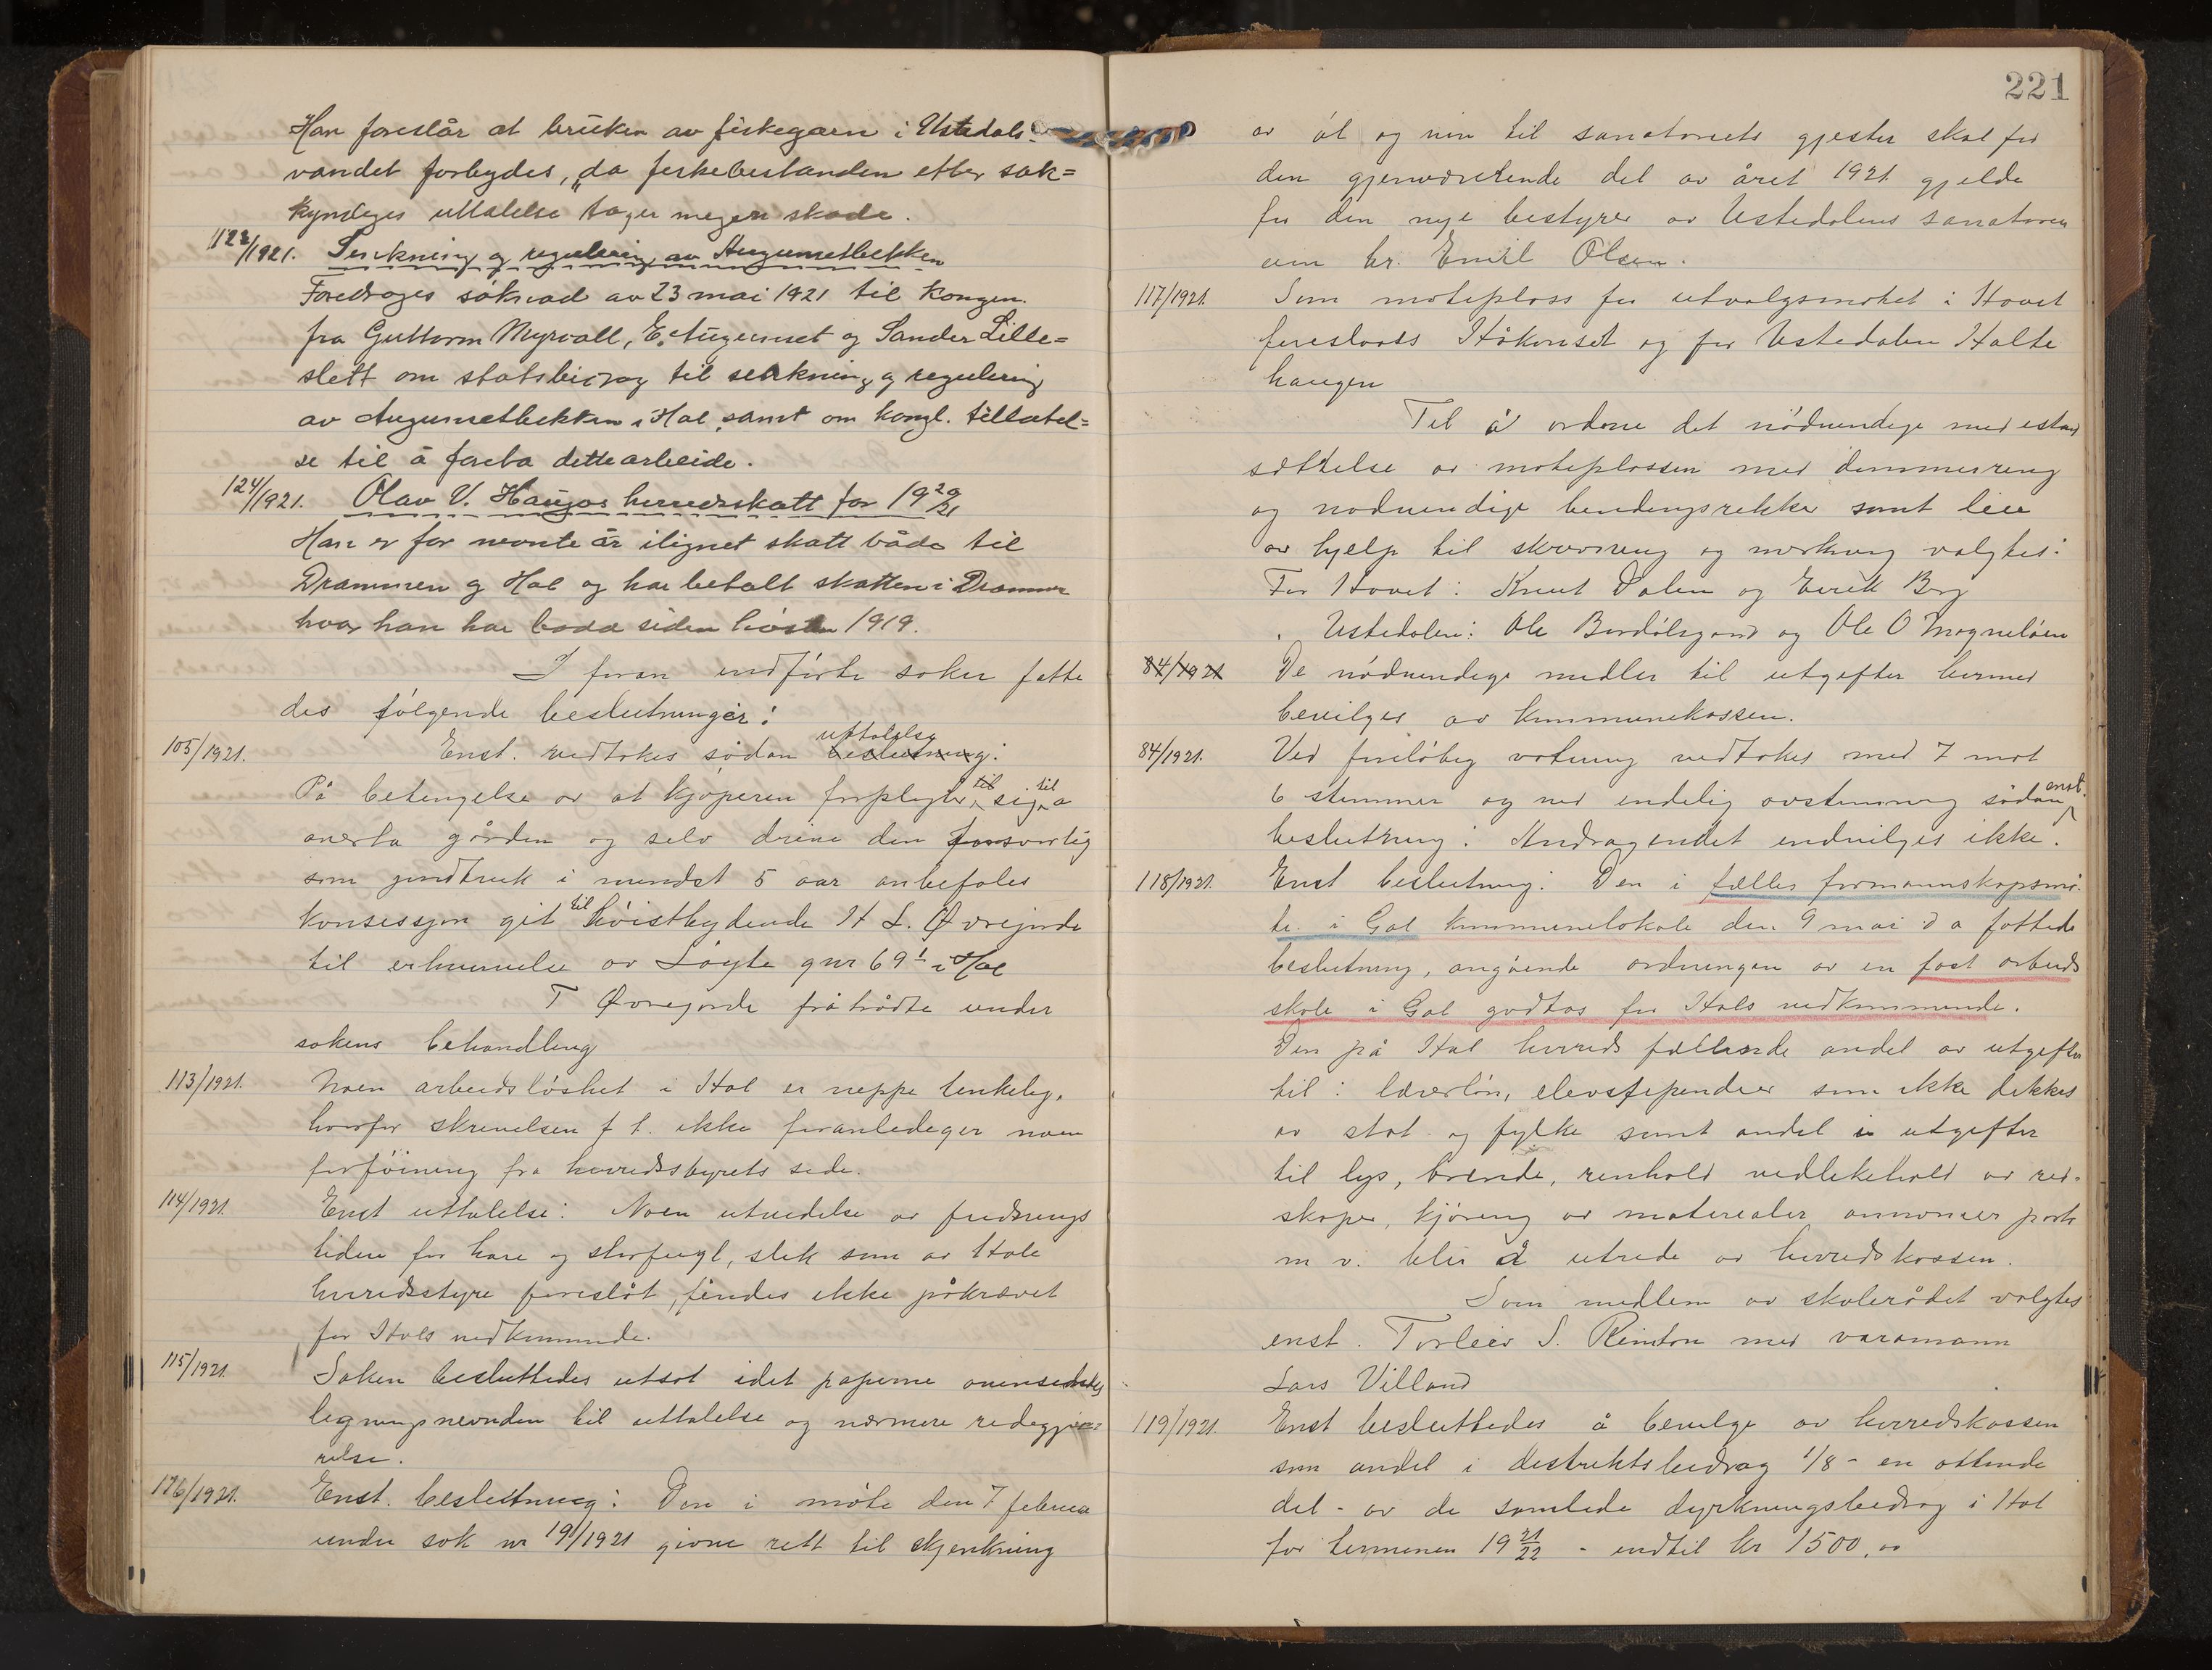 Han foreslår at bruken av fiskegarn i Ustedals-
vandet forbydes, da fiskebestanden etter sak=
kyndiges uttalelse tager megen skade.
123/1921. Senkning og regulering av Augunsetbekken
Foredroges søknad av 23 mai 1921 til Kongen
fra Guttorm Myrvoll, E. Augunset og Sander Lille=
slett om statsbidrag til senkning og regulering
av Augunsetbekken i Hol, samt om kongl. tillatel=
se til å foreta dette arbeide.
124/1921. Olav V. Haugos herredskatt for 1920/21
Han er for nevnte år ilignet skatt både til
Drammen og Hol og har betalt skatten i Drammen
hvor han har bodd siden høsten 1919.
I foran indførte saker fatte
des følgende beslutninger:
105/1921. Enst. vedtokes sådan uttalelse beslutning:
På betingelse av at kjøperen forplegter til sig til a
overta gården og selv drive den forsvarlig
som gardbruk i mindst 5 aar anbefales
konsessjon git til høistbydende H L. Øvrejorde
til erhvervelse av Løyte gnr 69¹ i Hol
T Øvrejorde fråtrådte under
sakens behandling
113/1921. Noen arbeidsløshet i Hol er neppe tenkelig,
hvorfor skrivelsen f t. ikke foranlediger noen
forføining fra herredsstyrets side.
114/1921. Enst uttalelse: Noen utvidelse av frednings
tiden for hare og storfugl, slik som av Hole
herredsstyre foreslåt, findes ikke påkrævet
for Hols vedkommende.
115/1921. Saken besluttedes utsat idet papirene oversendes
ligningsnevnden til uttalelse og nærmere redegjø=
relse.
116/1921. Enst. beslutning: Den i møte den 7 februar
under sak nr 191/1921 givne rett til skjenkning
221
av øl og vin til sanatoriets gjester skal for
den gjenværende del av året 1921 gjelde
for den nye bestyrer av Ustedalens sanatorium
hr. Emil Olsen.
117/1921. Som møteplass for utvalgsmøtet i Hovet
foreslaas Håkonset og for Ustedalen Halte
haugen
Til å ordne det nødvendige med istand
sættelse av møteplassen med
og nødvendige bindingsrekker samt leie
av hjelp til skrivning og merkning valgtes:
For Hovet: Knut Dalen og Eirik Berg
" Ustedalen: Ole Bardølsgard og Ole O Mogneløien
84/1921 De nødvendige midler til utgifter hermed
bevilges av kommunekassen.
84/1921. Ved foreløbig votering vedtokes med 7 mot
6 stemmer og ved endelig avstemning sådan enst.
beslutning: Andragendet indvilges ikke.
118/1921. Enst beslutning: Den i fælles formannskapsmø-
te i Gol kommunelokale den 9 mai d a fattede
beslutning, angående ordningen av en fast arbeids
skole i Gol godtas for Hols vedkommende.
Den på Hol herred fallende andel av utgifter
til: lærerløn, elevstipendier som ikke dekkes
av stat og fylke samt andel i utgifter
til lys, brende, renhold vedlikehold av red-
skaper, kjøring av materialer annonser porto
m v. blir å utrede av herredskassen.
Som medlem av skolerådet valgtes
enst. Torleiv S. Reinton med varamann
Lars Villand
119/1921. Enst besluttedes å bevilge av herredskassen
som andel i distriktsbidrag 1/8 - en ottende
del - av de samlede dyrkningsbidrag i Hol
for terminen 1921/22 - indtil kr 1500,00